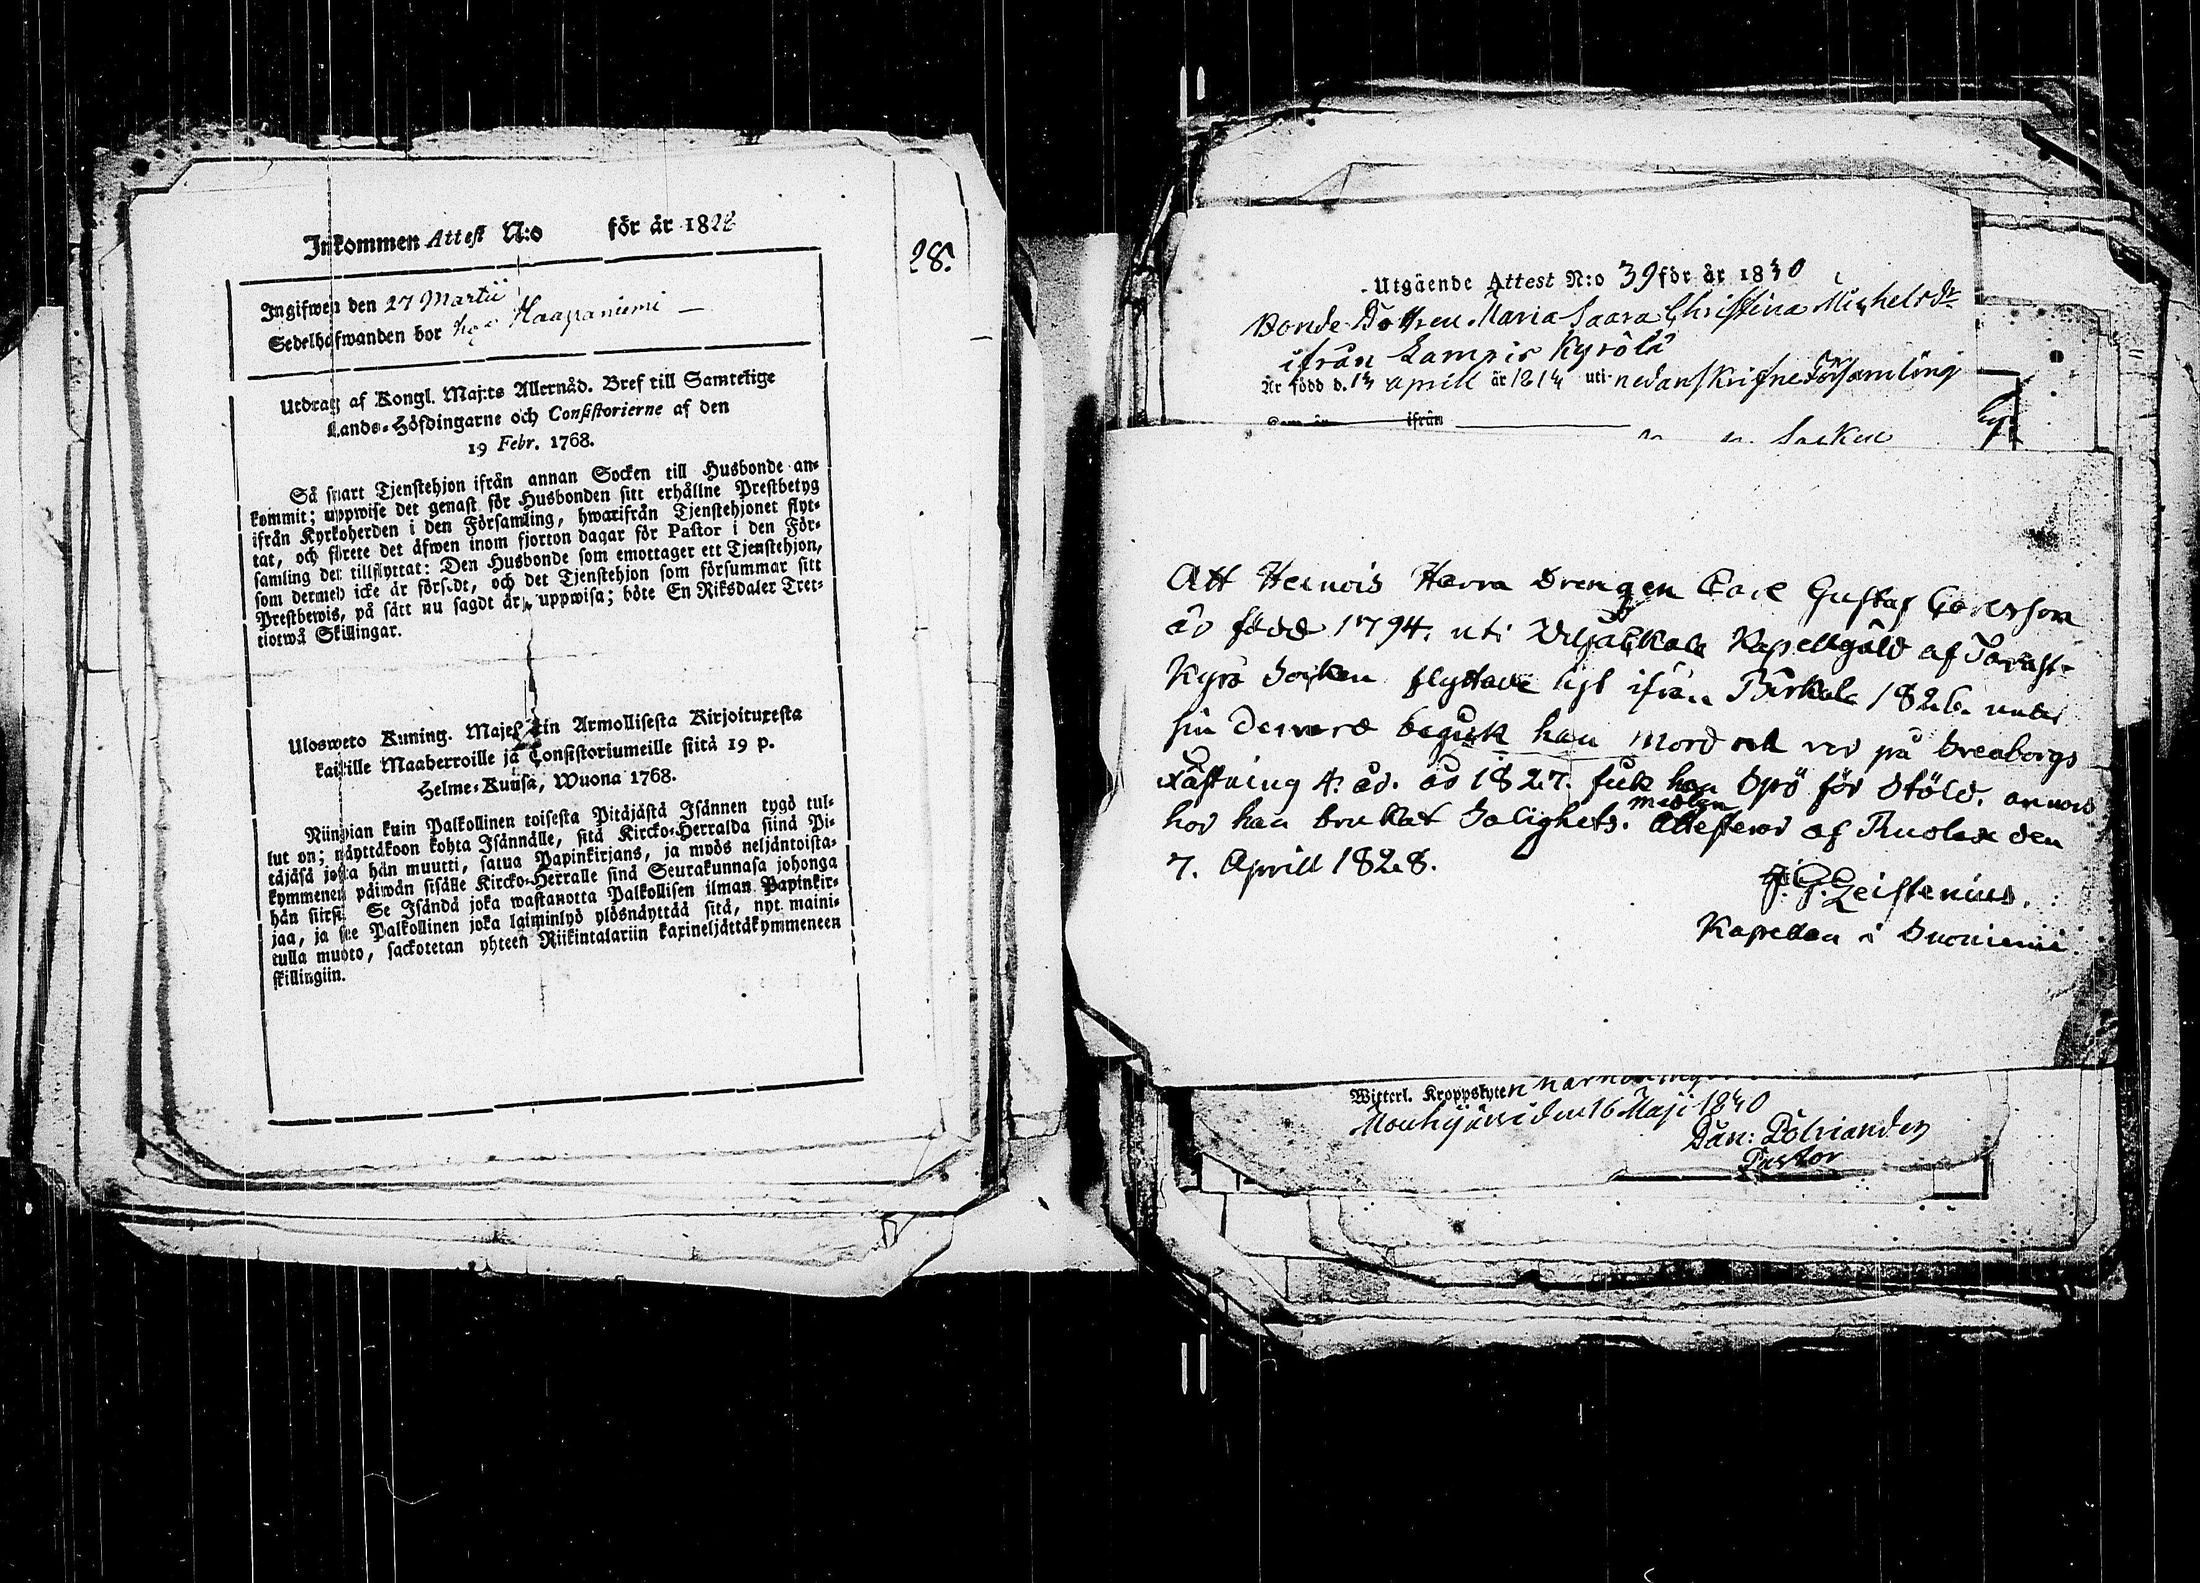 Inkommen Attest N:o för år 1828
28.
Ingifwen den 27 Martii
Sedelhafwanden bor Haapaniemi
Utdrag af Kongl. Maj:ts Allernåd. Bref till Samtelige
Lands-Höfdingarne och Consistorierne af den
19 Febr. 1768.
Så snart Tjenstehjon ifrån annan Socken till Husbonde an-
kommit; uppwise det genast för Husbonden sitt erhållne Prestbetyg
ifrån Kyrkoherden i den Församling, hwarifrån Tjenstehjonet flyt-
tat, och förete det äfwen inom fjorton dagar för Pastor i den För-
samling det tillflyttat: Den Husbonde som emottager ett Tjenstehjon,
som dermed icke är försedt, och det Tjenstehjon som försummar sitt
Prestbewis, på sätt nu sagdt är, uppwisa; böte En Riksdaler Tret-
tiotwå Skillingar.
Ulosweto Kuning. Majestetin Armollisesta Kirjoituxesta
kaikille Maaherroille ja Consistoriumeille siitä 19 p.
Helme-Kuusa, Wuona 1768.
Niinpian kuin Palkollinen toisesta Pitäjästä Isännen tygö tul-
lut on; näyttäköön kohta Isännälle, sitä Kircko-Herralda siinä Pi-
täjäsä josta hän muutti, saatua Papinkirjans, ja myös neljäntoista-
kymmenen päiwän sisälle Kircko-Herralle siinä Seurakunnasa johonga
hän siirsi. Se Isändä joka wastanotta Palkollisen ilman Papinkir-
jaa, ja see Palkollinen joka laiminlyö ylösnäyttää sitä, nyt maini-
tulla muoto, sackotetan yhteen Riikintalariin kaxineljättäkymmeneen
skillingiin.
Utgående Attest N:o 39 för år 1840
Bonde Dottren Maria Saara Christina Michelsdr
ifrån Lampis Kyrölä
Är född d. 14 april år 1814 uti nedanskrifne Församling
ifrån
Att Heinois Harra Drengen Carl Gustaf Carlsson
är född 1794. uti Viljakkala Kapellgäld af Tavast-
Kyrö Socken flyttade hjt ifrån Birkala 1826. under
sin dervaro begick han mord och var på Sveaborgs
Fästning 4. år. år 1827. fick han Spö för Stöld. annors
har han brukat Salighets. medlen Attesterar af Suolax den
7. Aprill 1828.
J. G. Zeistenius.
Kapellan i Suoniemi
Witterl. Kroppslyten
Mouhijärvi den 16 Maji 1840
Dan: Pölviander
Pastor